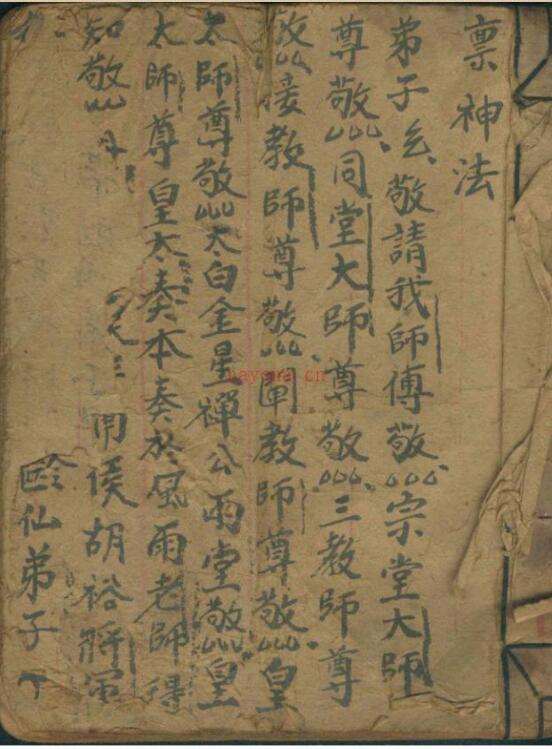 禀神法
弟子 敬請我師傅敬 宗堂大師
尊敬 同堂大師尊敬 三教師尊
敬 接教師尊敬 闡教師尊敬 皇
太師尊敬 太白金星禪公雨堂敬 皇
太師尊皇太奏本奏於風雨老師得
知敬
用侯胡裕將軍
仙弟子
nayona.cn